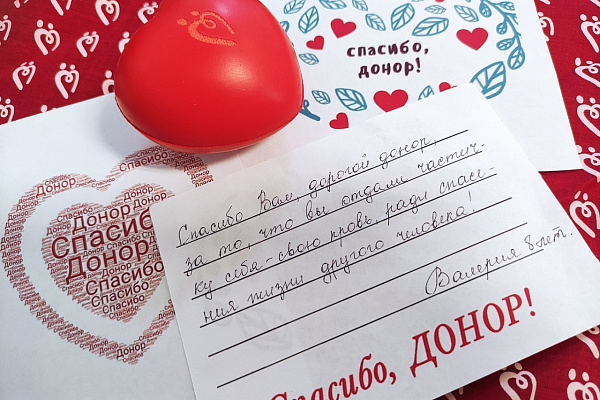 спасибо,
донор!
Спасибо Вам, дорогой донор,
за то, что вы отдали частич-
ку себя - свою кровь, ради спасе-
ния жизни другого человека!
Валерия 8 лет.
Спасибо, ДОНОР!
Спасибо
Донор
Донор
Спасибо
Донор
Спасибо
Донор